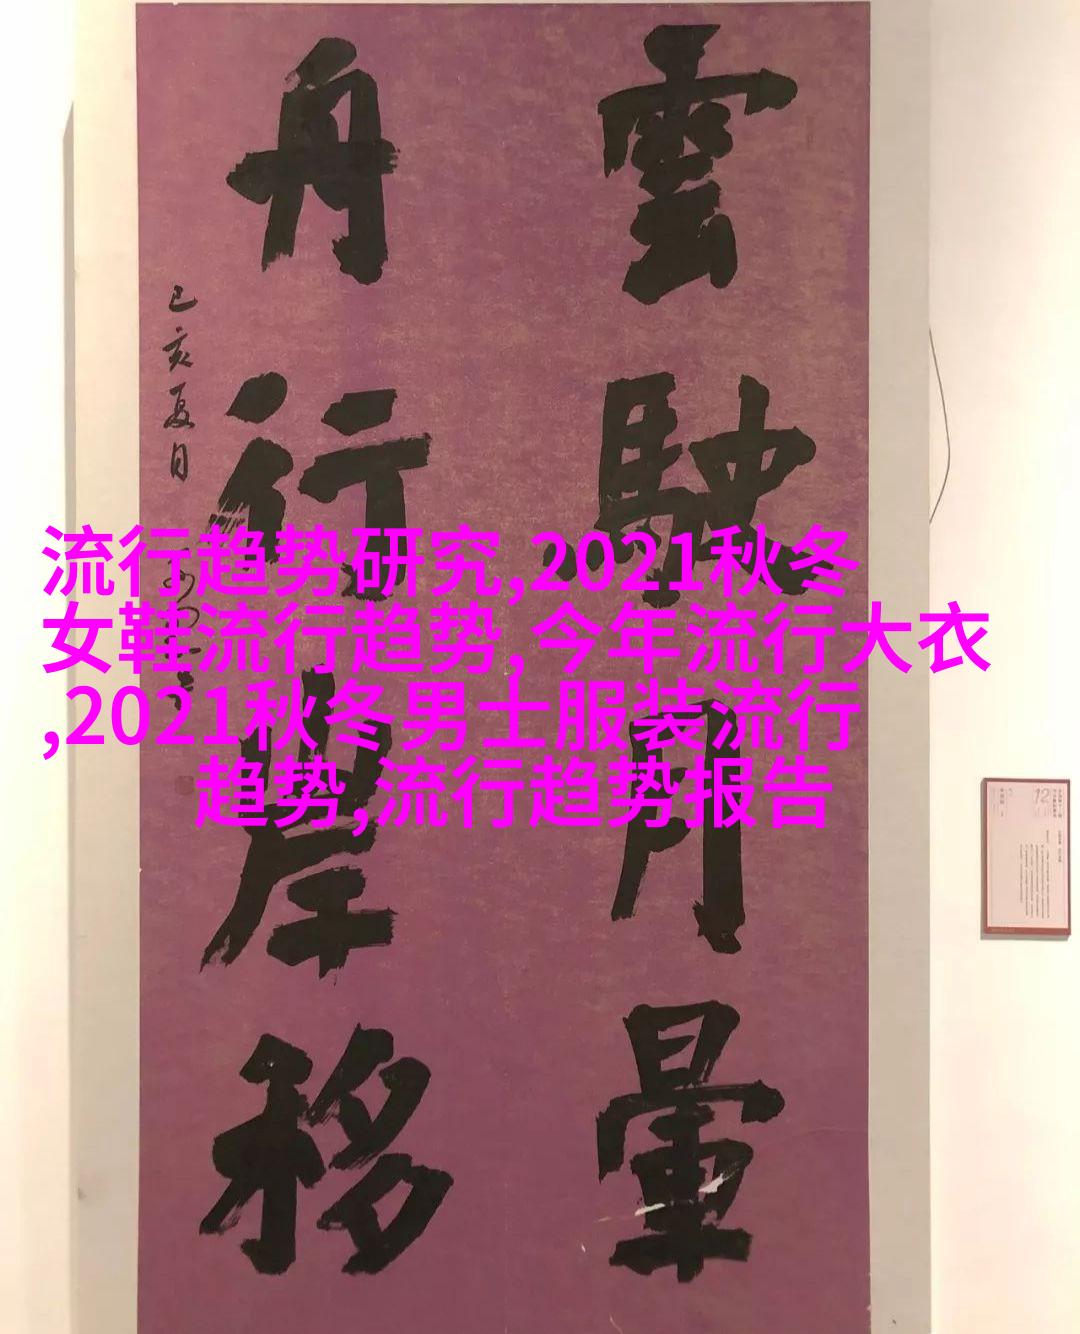 雲駛月暈
舟行岸移
己亥夏日
流行趋势研究,2021秋冬
女鞋流行趋势,今年流行大衣
,2021秋冬男士服装流行
趋势,流行趋势报告
12